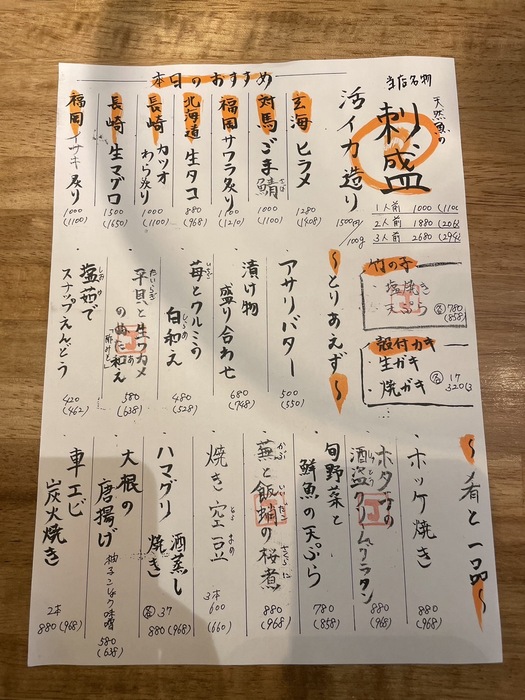 本日のおすすめ
当店名物
天然魚の
刺し盛
1人前 1000 (1100
2人前 1880 (206
3人前 2680 (294
活イカ造り
1500(税)/100g
玄海 ヒラメ
1280
(1408)
対馬 ごま鯖
さば
1000
(1100)
福岡 サワラ炙り
1100
(1210)
北海道 生タコ
880
(968)
長崎 カツオ
わら炙り
1000
(1100)
長崎 生マグロ
1500
(1650)
福岡 イサキ炙り
1000
(1100)
竹の子
・塩焼き
・天ぷら
各780
(858)
殻付カキ
・生ガキ
・焼ガキ
〜とりあえず〜
・アサリバター
500
(550)
・漬け物
盛り合わせ
680
(748)
・苺とクルミの
いちご
白和え
しらあ
480
(528)
・平貝と生ワカメ
たいらぎ
のぬた和え
「酢みそ」
580
(638)
・塩茹で
しおゆ
スナップえんどう
420
(462)
〜肴と一品〜
・ホッケ焼き
880(968)
・ホタテの
酒盗クリームグラタン
しゅとう
880
(968)
・旬野菜と
鮮魚の天ぷら
780
(858)
・蕪と飯蛸の桜煮
かぶ
いいだこ
さくらに
880
(968)
・焼き空豆
そらまめ
3本
600
(660)
・ハマグリ 酒蒸し
焼き
各37
880(968)
・大根の
唐揚げ
柚子こしょう味噌
580
(638)
・車エビ
炭火焼き
2本
880(968)